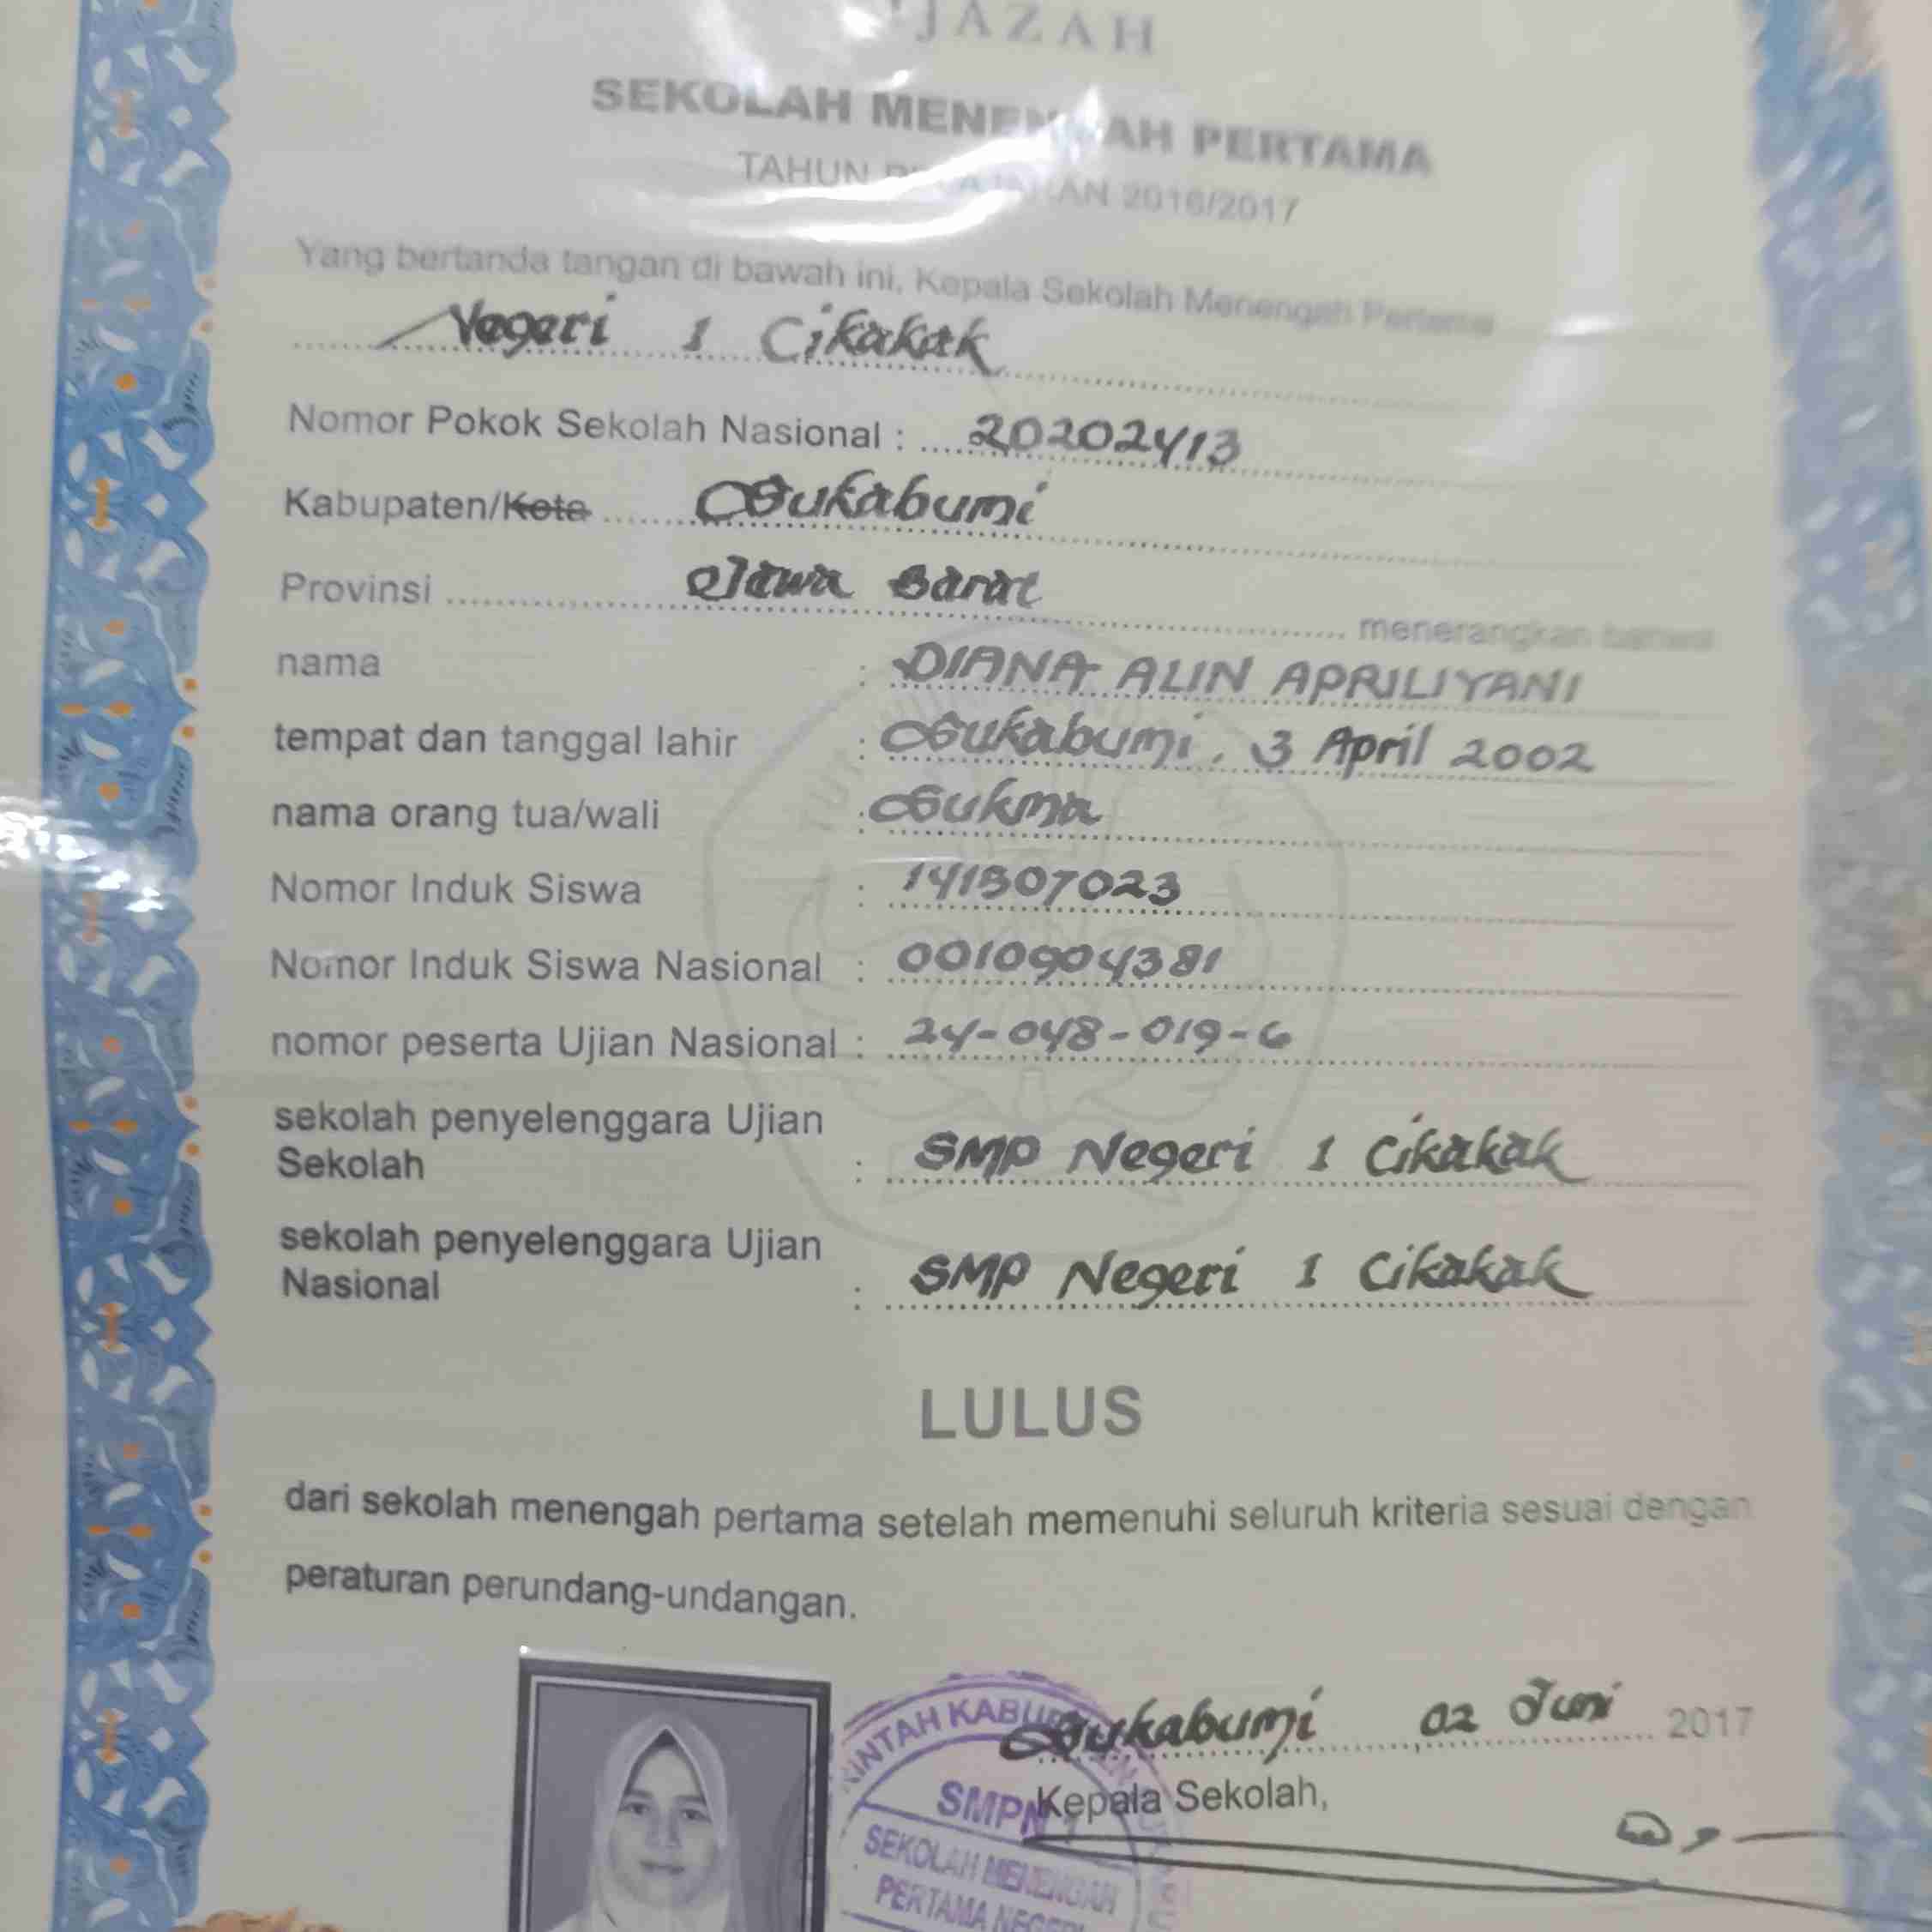 IJAZAH
SEKOLAH MENENGAH PERTAMA
TAHUN PELAJARAN 2016/2017
Yang bertanda tangan di bawah ini, Kepala Sekolah Menengah Pertama
Negeri 1 Cikakak
Nomor Pokok Sekolah Nasional : 20202413
Kabupaten/Kota Sukabumi
Provinsi Jawa Barat menerangkan bahwa
nama : DIANA ALIN APRILIYANI
tempat dan tanggal lahir : Sukabumi, 3 April 2002
nama orang tua/wali : Sukma
Nomor Induk Siswa : 141507023
Nomor Induk Siswa Nasional : 0010904381
nomor peserta Ujian Nasional : 24-048-019-6
sekolah penyelenggara Ujian
Sekolah : SMP Negeri 1 Cikakak
sekolah penyelenggara Ujian
Nasional : SMP Negeri 1 Cikakak
LULUS
dari sekolah menengah pertama setelah memenuhi seluruh kriteria sesuai dengan
peraturan perundang-undangan.
Sukabumi 02 Juni 2017
Kepala Sekolah,
KABUPATEN
SMPN 1
SEKOLAH MENENGAH
PERTAMA NEGERI